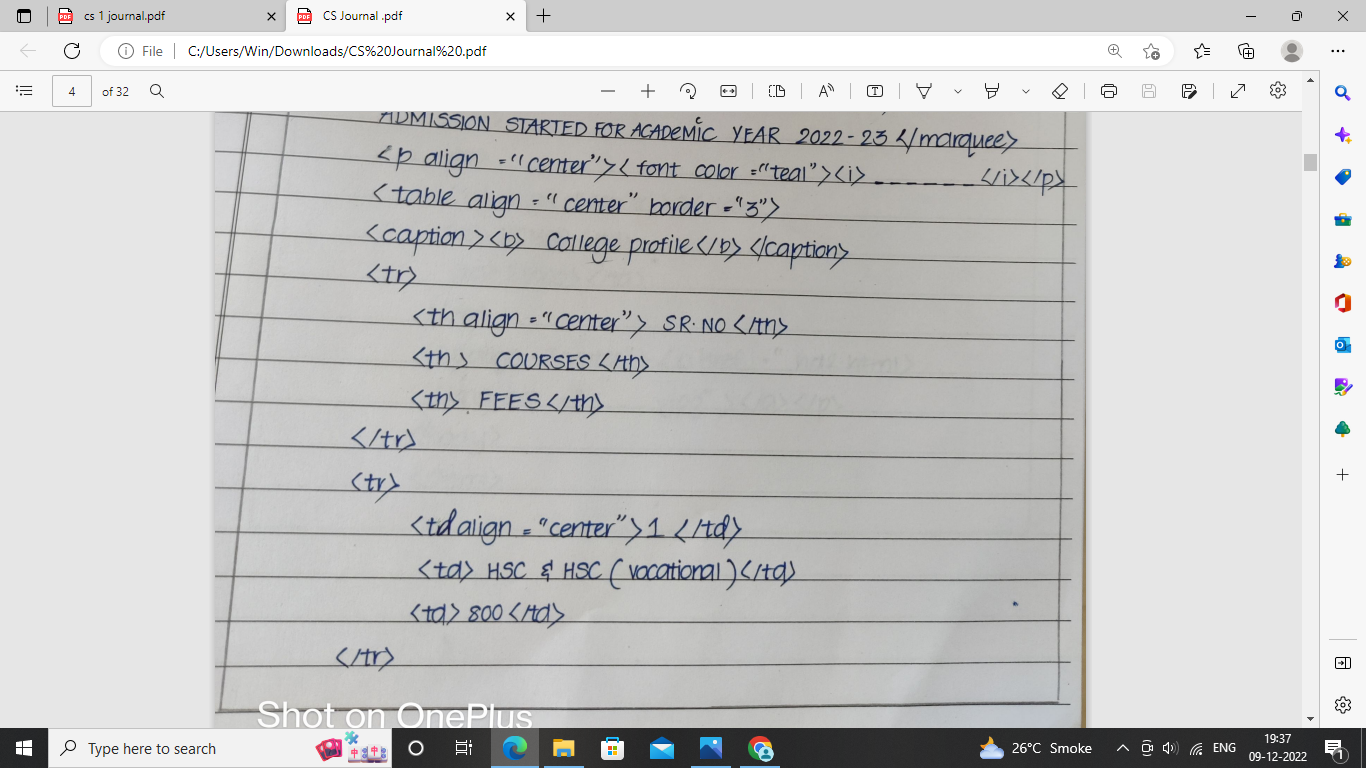 cs 1 journal.pdf
CS Journal .pdf
File
C:/Users/Win/Downloads/CS%20Journal%20.pdf
4
of 32
ADMISSION STARTED FOR ACADEMIC YEAR 2022-23 </marquee>
<p align ="center"><font color ="teal"><i> ------- </i></p>
<table align ="center" border ="3">
<caption><b> College profile</b> </caption>
<tr>
<th align ="center"> SR.NO </th>
<th> COURSES </th>
<th> FEES </th>
</tr>
<tr>
<td align ="center">1 </td>
<td> HSC & HSC (vocational)</td>
<td> 800 </td>
</tr>
Shot on OnePlus
Type here to search
26°C Smoke
ENG
19:37
09-12-2022
1